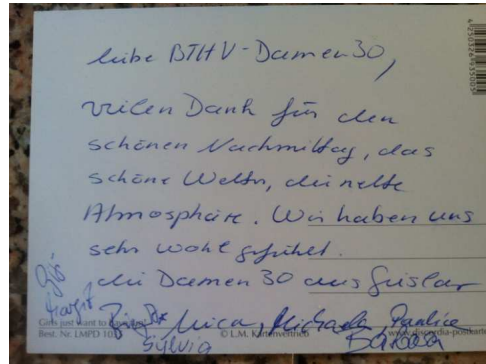 liebe BTHV-Damen30,
vielen Dank für den
schönen Nachmittag, das
schöne Wetter, die nette
Atmosphäre. Wir haben uns
sehr wohl gefühlt.
die Damen 30 aus
Margit
Birgit Mica, Michaela Paulina
Sylvia Barbara
Girls just want to
Best. Nr. LMPD
© L.M. Kartenvertrieb
4250326935005